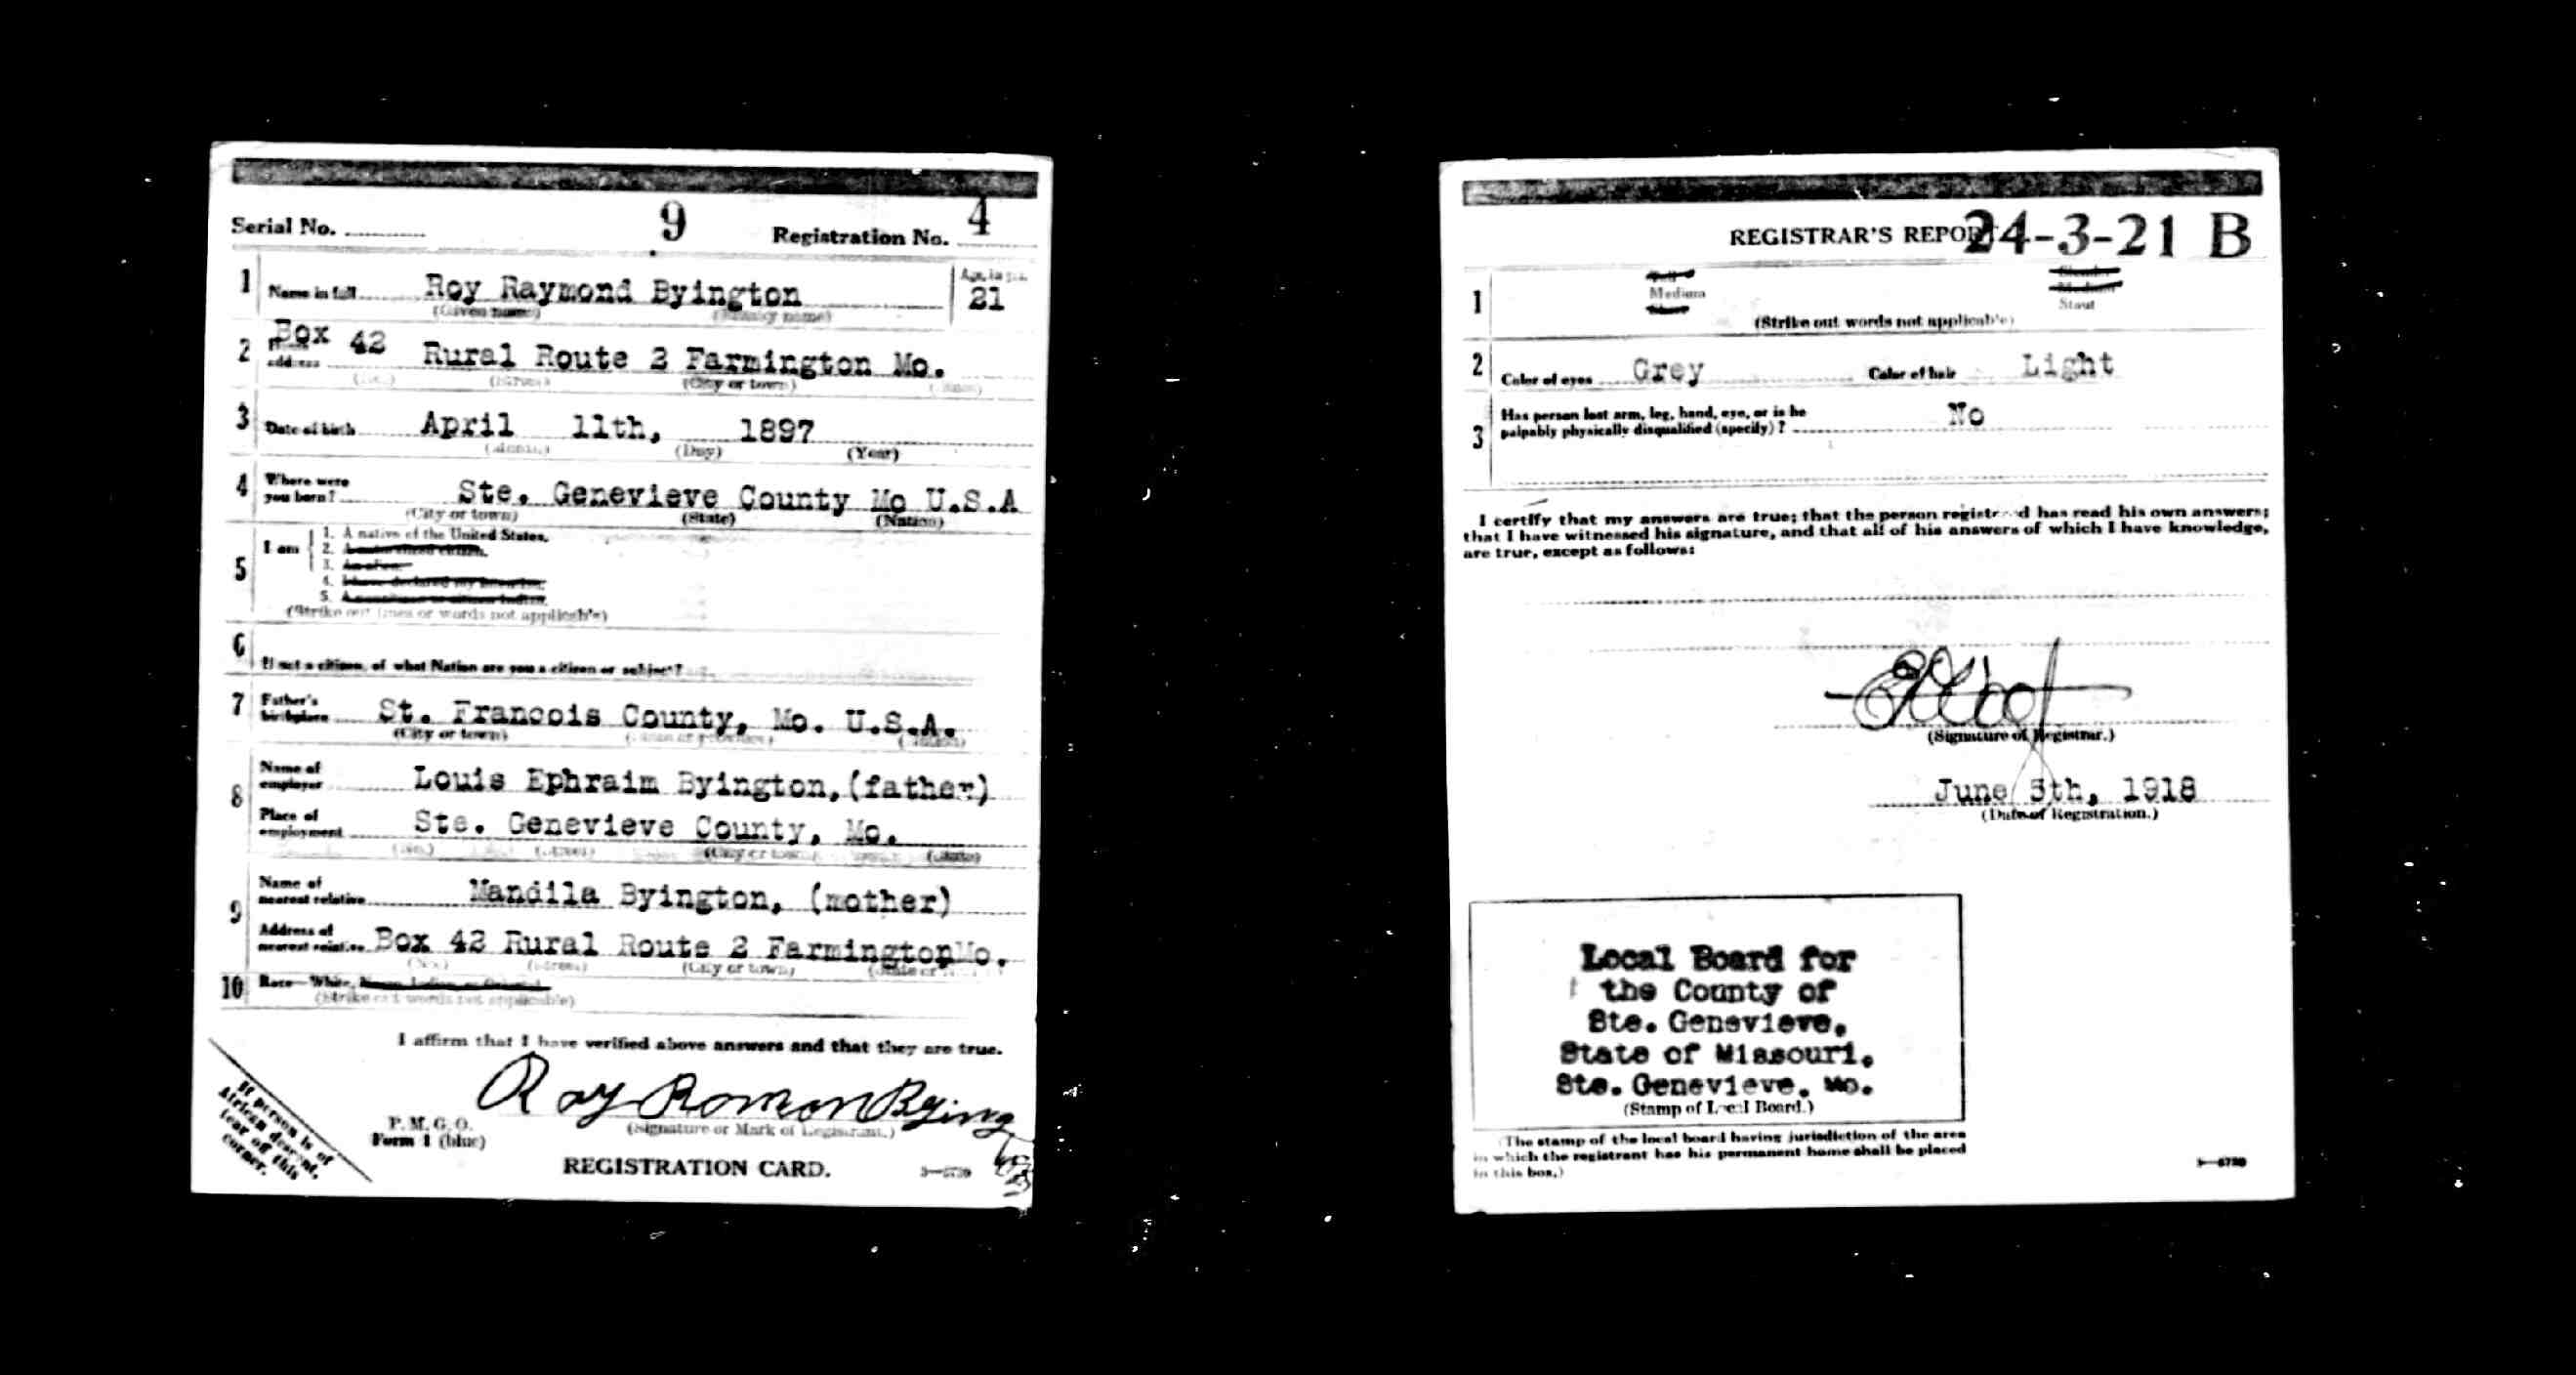 Serial No. 9 Registration No. 4
1 Name in full Roy Raymond Byington Age, in yrs. 21
(Given name) (Family name)
2 Box 42 Rural Route 2 Farmington Mo.
address
(No.) (Street) (City or town) (State)
3 Date of birth April 11th, 1897
(Month) (Day) (Year)
4 Where were you born? Ste. Genevieve County Mo U.S.A
(City or town) (State) (Nation)
5 I am
1. A native of the United States.
2. A naturalized citizen.
3. An alien.
4. I have declared my intention.
5. A noncitizen or citizen Indian.
(Strike out lines or words not applicable)
6 If not a citizen, of what Nation are you a citizen or subject?
7 Father's birthplace St. Francois County, Mo. U.S.A.
(City or town) (State or province) (Nation)
8 Name of employer Louis Ephraim Byington, (father)
Place of employment Ste. Genevieve County, Mo.
(No.) (Street) (City or town) (State)
9 Name of nearest relative Mandila Byington, (mother)
Address of nearest relative Box 42 Rural Route 2 Farmington Mo.
(No.) (Street) (City or town) (State or
10 Race—White, Negro, Indian, or Oriental
(Strike out words not applicable)
I affirm that I have verified above answers and that they are true.
Roy Romon Byington
(Signature or Mark of Registrant.)
P. M. G. O.
Form 1 (blue)
REGISTRATION CARD.
If person is of
African descent,
tear off this
corner.
REGISTRAR'S REPORT 24-3-21 B
1 Tall Slender
Medium Medium
Short Stout
(Strike out words not applicable)
2 Color of eyes Grey Color of hair Light
3 Has person lost arm, leg, hand, eye, or is he
palpably physically disqualified (specify)? No
I certify that my answers are true; that the person registered has read his own answers;
that I have witnessed his signature, and that all of his answers of which I have knowledge,
are true, except as follows:
(Signature of Registrar.)
June 5th, 1918
(Date of Registration.)
Local Board for
the County of
Ste. Genevieve,
State of Missouri.
Ste. Genevieve, Mo.
(Stamp of Local Board.)
(The stamp of the local board having jurisdiction of the area
in which the registrant has his permanent home shall be placed
in this box.)